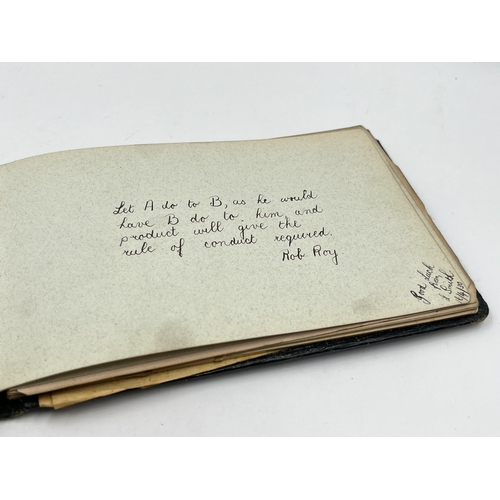 Let A do to B, as he would
have B do to him, and
product will give the
rule of conduct required.
Rob Roy
Good Luck
from
J. Smith